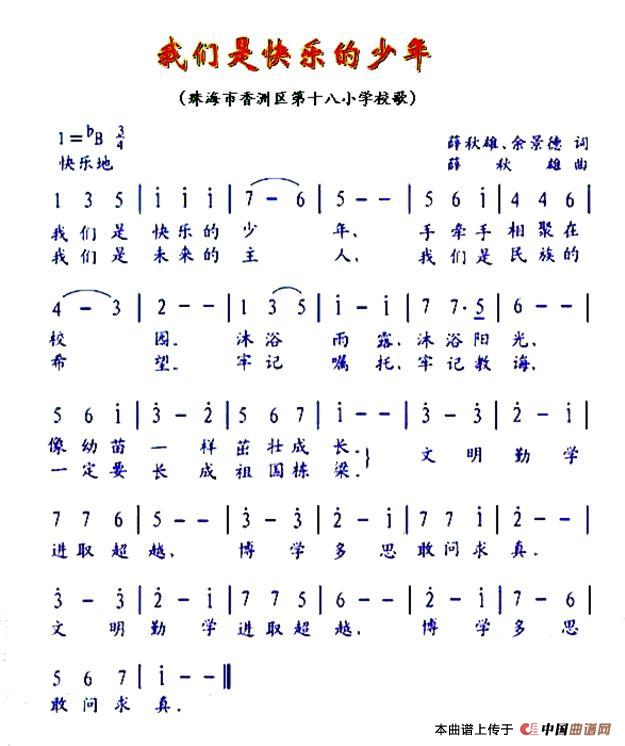 我们是快乐的少年
(珠海市香洲区第十八小学校歌)
1=ᵇB 3/4 薛秋雄、余景德 词
快乐地 薛秋雄 曲
1 3 5 | i i i | 7 - 6 | 5 - - | 5 6 i | 4 4 6 |
我们是 快乐的 少 年、 手牵手 相聚在
我们是 未来的 主 人、 我们是 民族的
4 - 3 | 2 - - | 1 3 5 | i - i | 7 7· 5 | 6 - - |
校 园。 沐浴 雨露、沐浴阳光,
希 望。 牢记 嘱托,牢记教诲,
5 6 i | 3̇ - 2̇ | 5 6 7 | i - - | 3̇ - 3̇ | 2̇ - i |
像幼苗 一 样 茁壮成长。} 文 明 勤 学
一定要 长 成 祖国栋梁。
7 7 6 | 5 - - | 3̇ - 3̇ | 2̇ - i | 7 7 i | 2̇ - - |
进取超越, 博 学 多 思 敢问求真.
3̇ - 3̇ | 2̇ - i | 7 7 5 | 6 - - | 2̇ - i | 7 - 6 |
文 明 勤 学 进取超越, 博 学 多 思
5 6 7 | i - - ‖
敢问求真.
本曲谱上传于 中国曲谱网